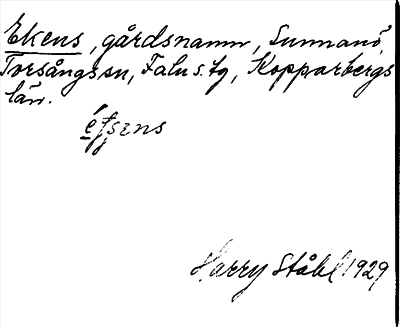 Ekens, gårdsnamn, Sunnanö,
Torsångs sn, Falu s. tg, Kopparbergs
län.
Harry Ståhl 1929